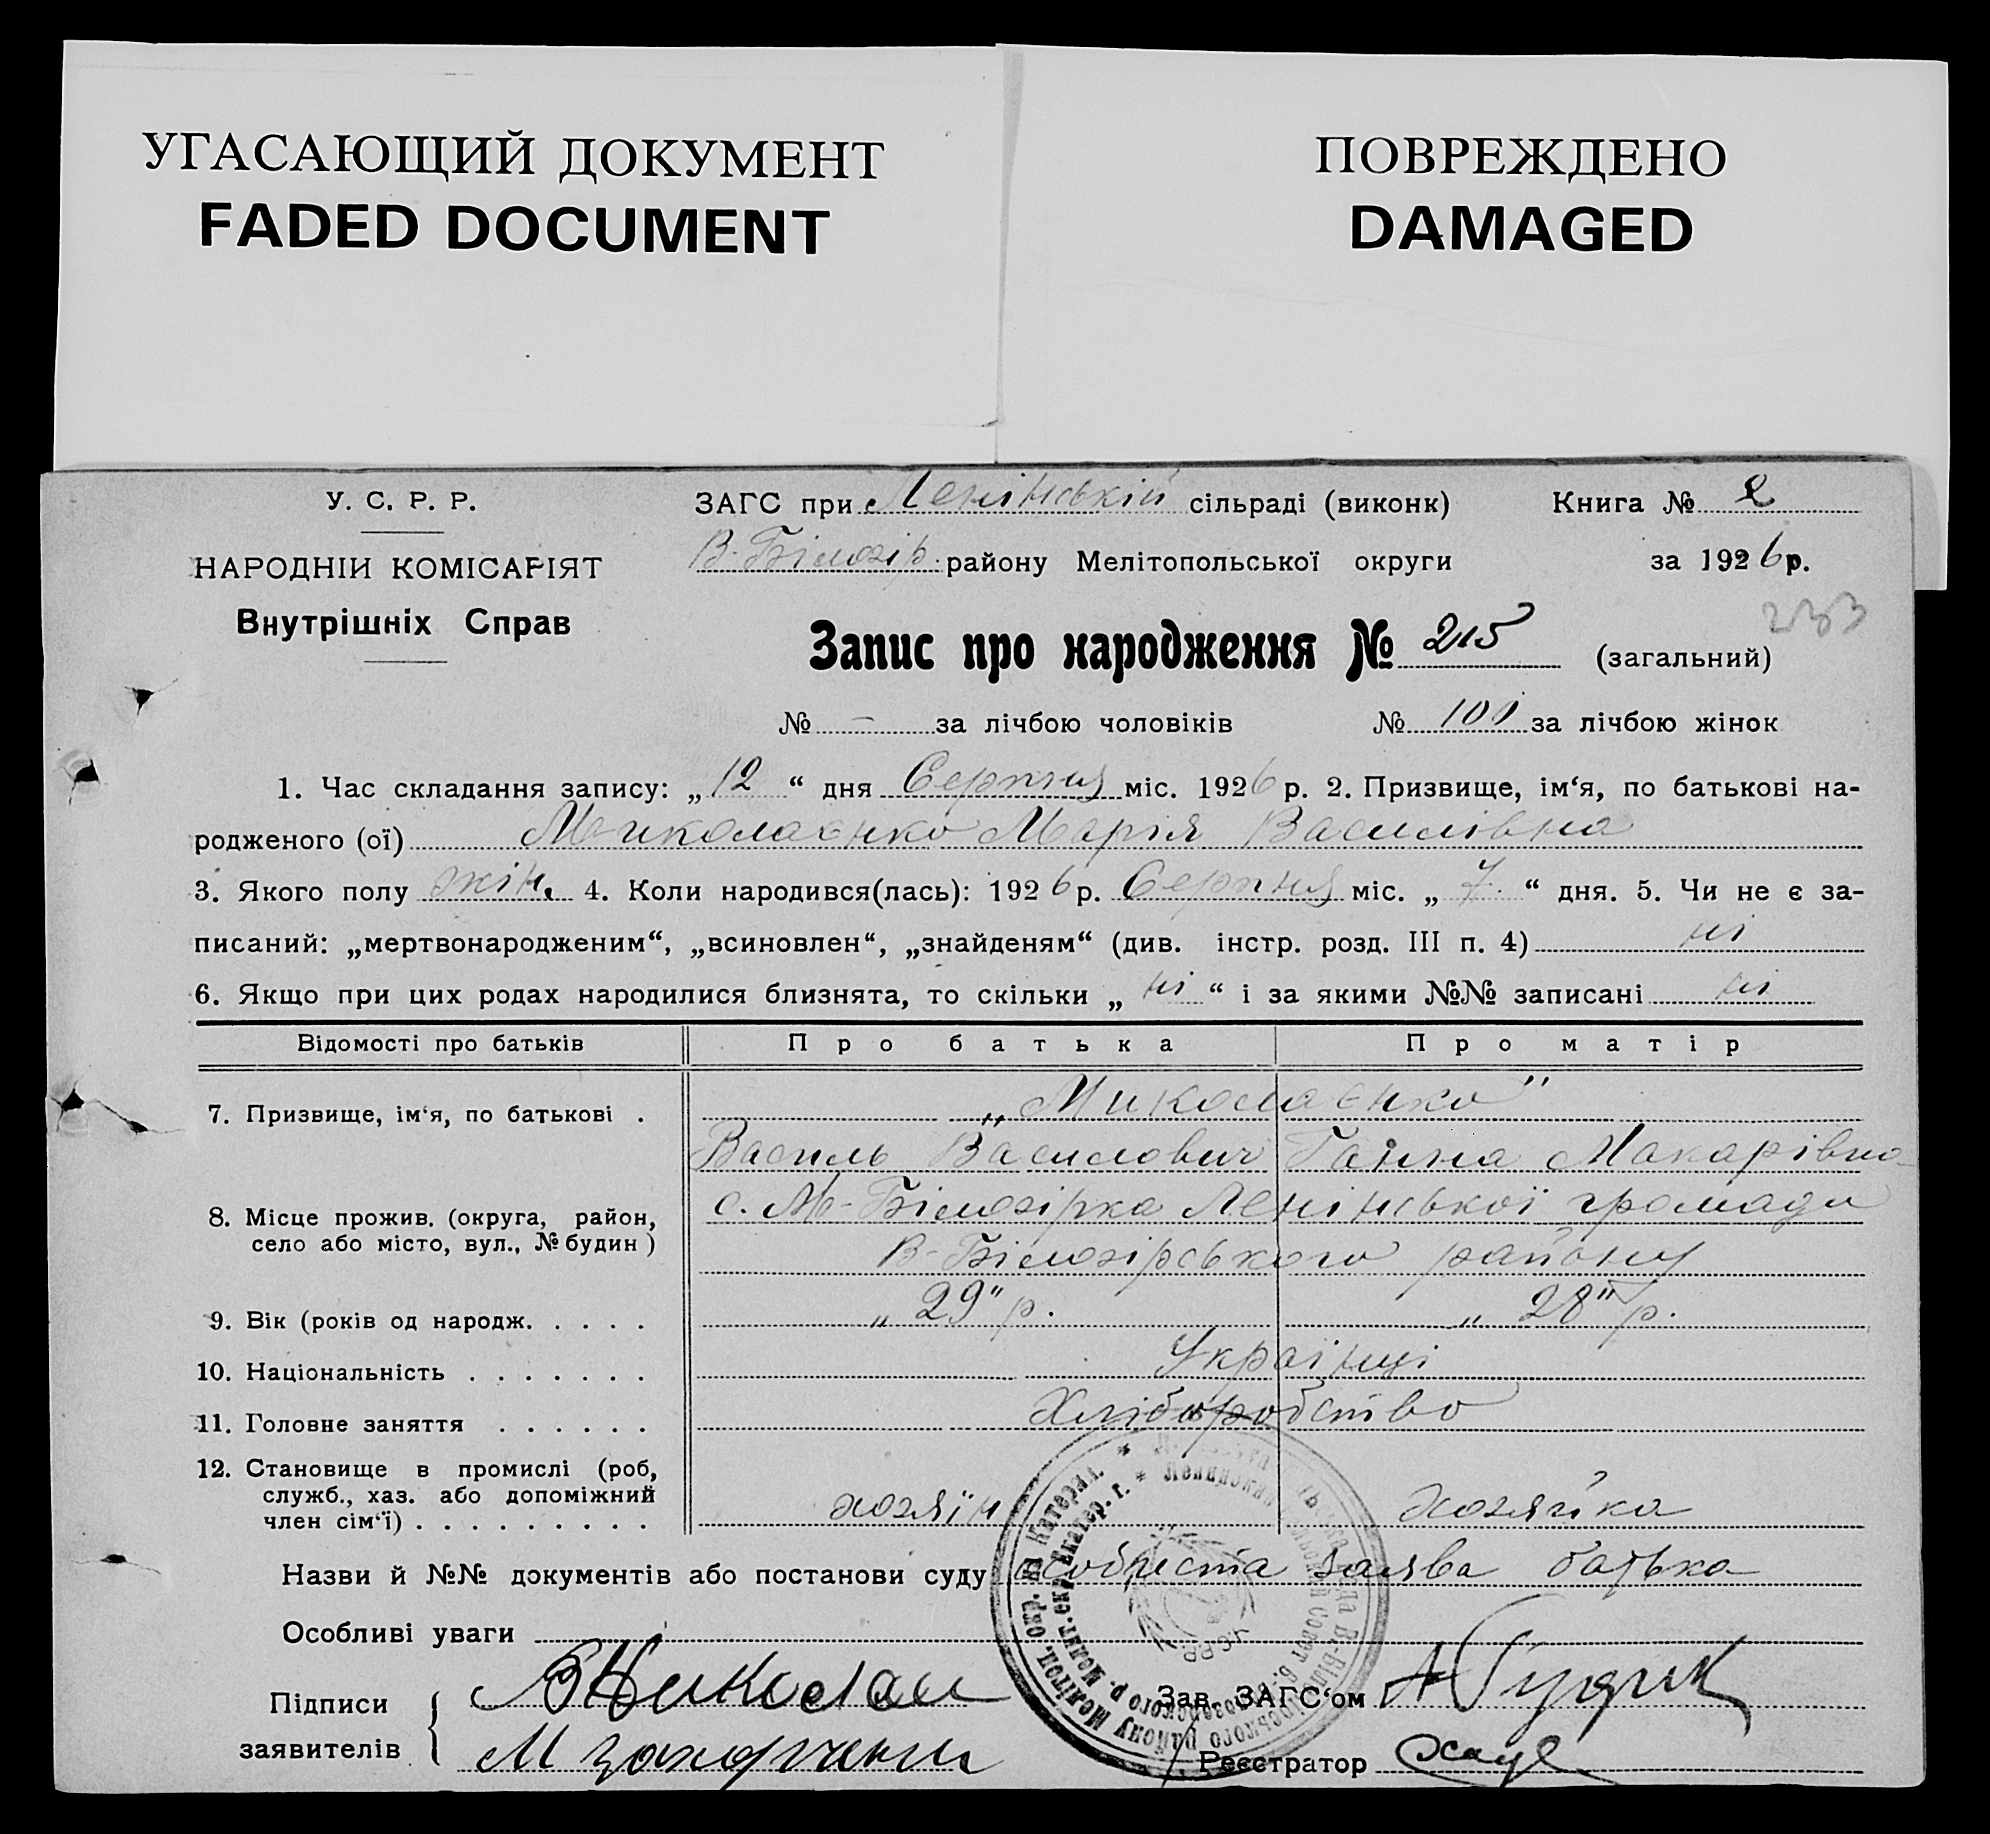 УГАСАЮЩИЙ ДОКУМЕНТ
FADED DOCUMENT
ПОВРЕЖДЕНО
DAMAGED
У. С. Р. Р.
НАРОДНІИ КОМІСАРІЯТ
Внутрішніх Справ
ЗАГС при Ленінській сільраді (виконк) Книга № 2
В-Білозір. району Мелітопольської округи за 1926 р.
233
Запис про народження № 215 (загальний)
№ – за лічбою чоловіків № 101 за лічбою жінок
1. Час складання запису: „12“ дня Серпня міс. 1926 р. 2. Призвище, ім‘я, по батькові на-
родженого (ої) Миколаєнко Марія Василівна
3. Якого полу жін. 4. Коли народився(лась): 1926 р. Серпня міс. „7“ дня. 5. Чи не є за-
писаний: „мертвонародженим“, „всиновлен“, „знайденям“ (див. інстр. розд. III п. 4) ні
6. Якщо при цих родах народилися близнята, то скільки „ні“ і за якими №№ записані ні
Відомості про батьків Про батька Про матір
7. Призвище, ім‘я, по батькові . „Миколаєнко"
Василь Василович Ганна Макарівна
8. Місце прожив. (округа, район, с. М-Білозірка Ленінської громади
село або місто, вул., № будин) В-Білозірського району
9. Вік (років од народж. . . . . „29" р. „28" р.
10. Національність . . . . . . . Українці
11. Головне заняття . . . . . . Хліборобство
12. Становище в промислі (роб,
служб., хаз. або допоміжний хозяїн хозяйка
член сім‘ї) . . . . . . . . .
Назви й №№ документів або постанови суду особиста заява батька
Особливі уваги
Підписи заявителів
Зав. ЗАГС‘ом
Реєстратор